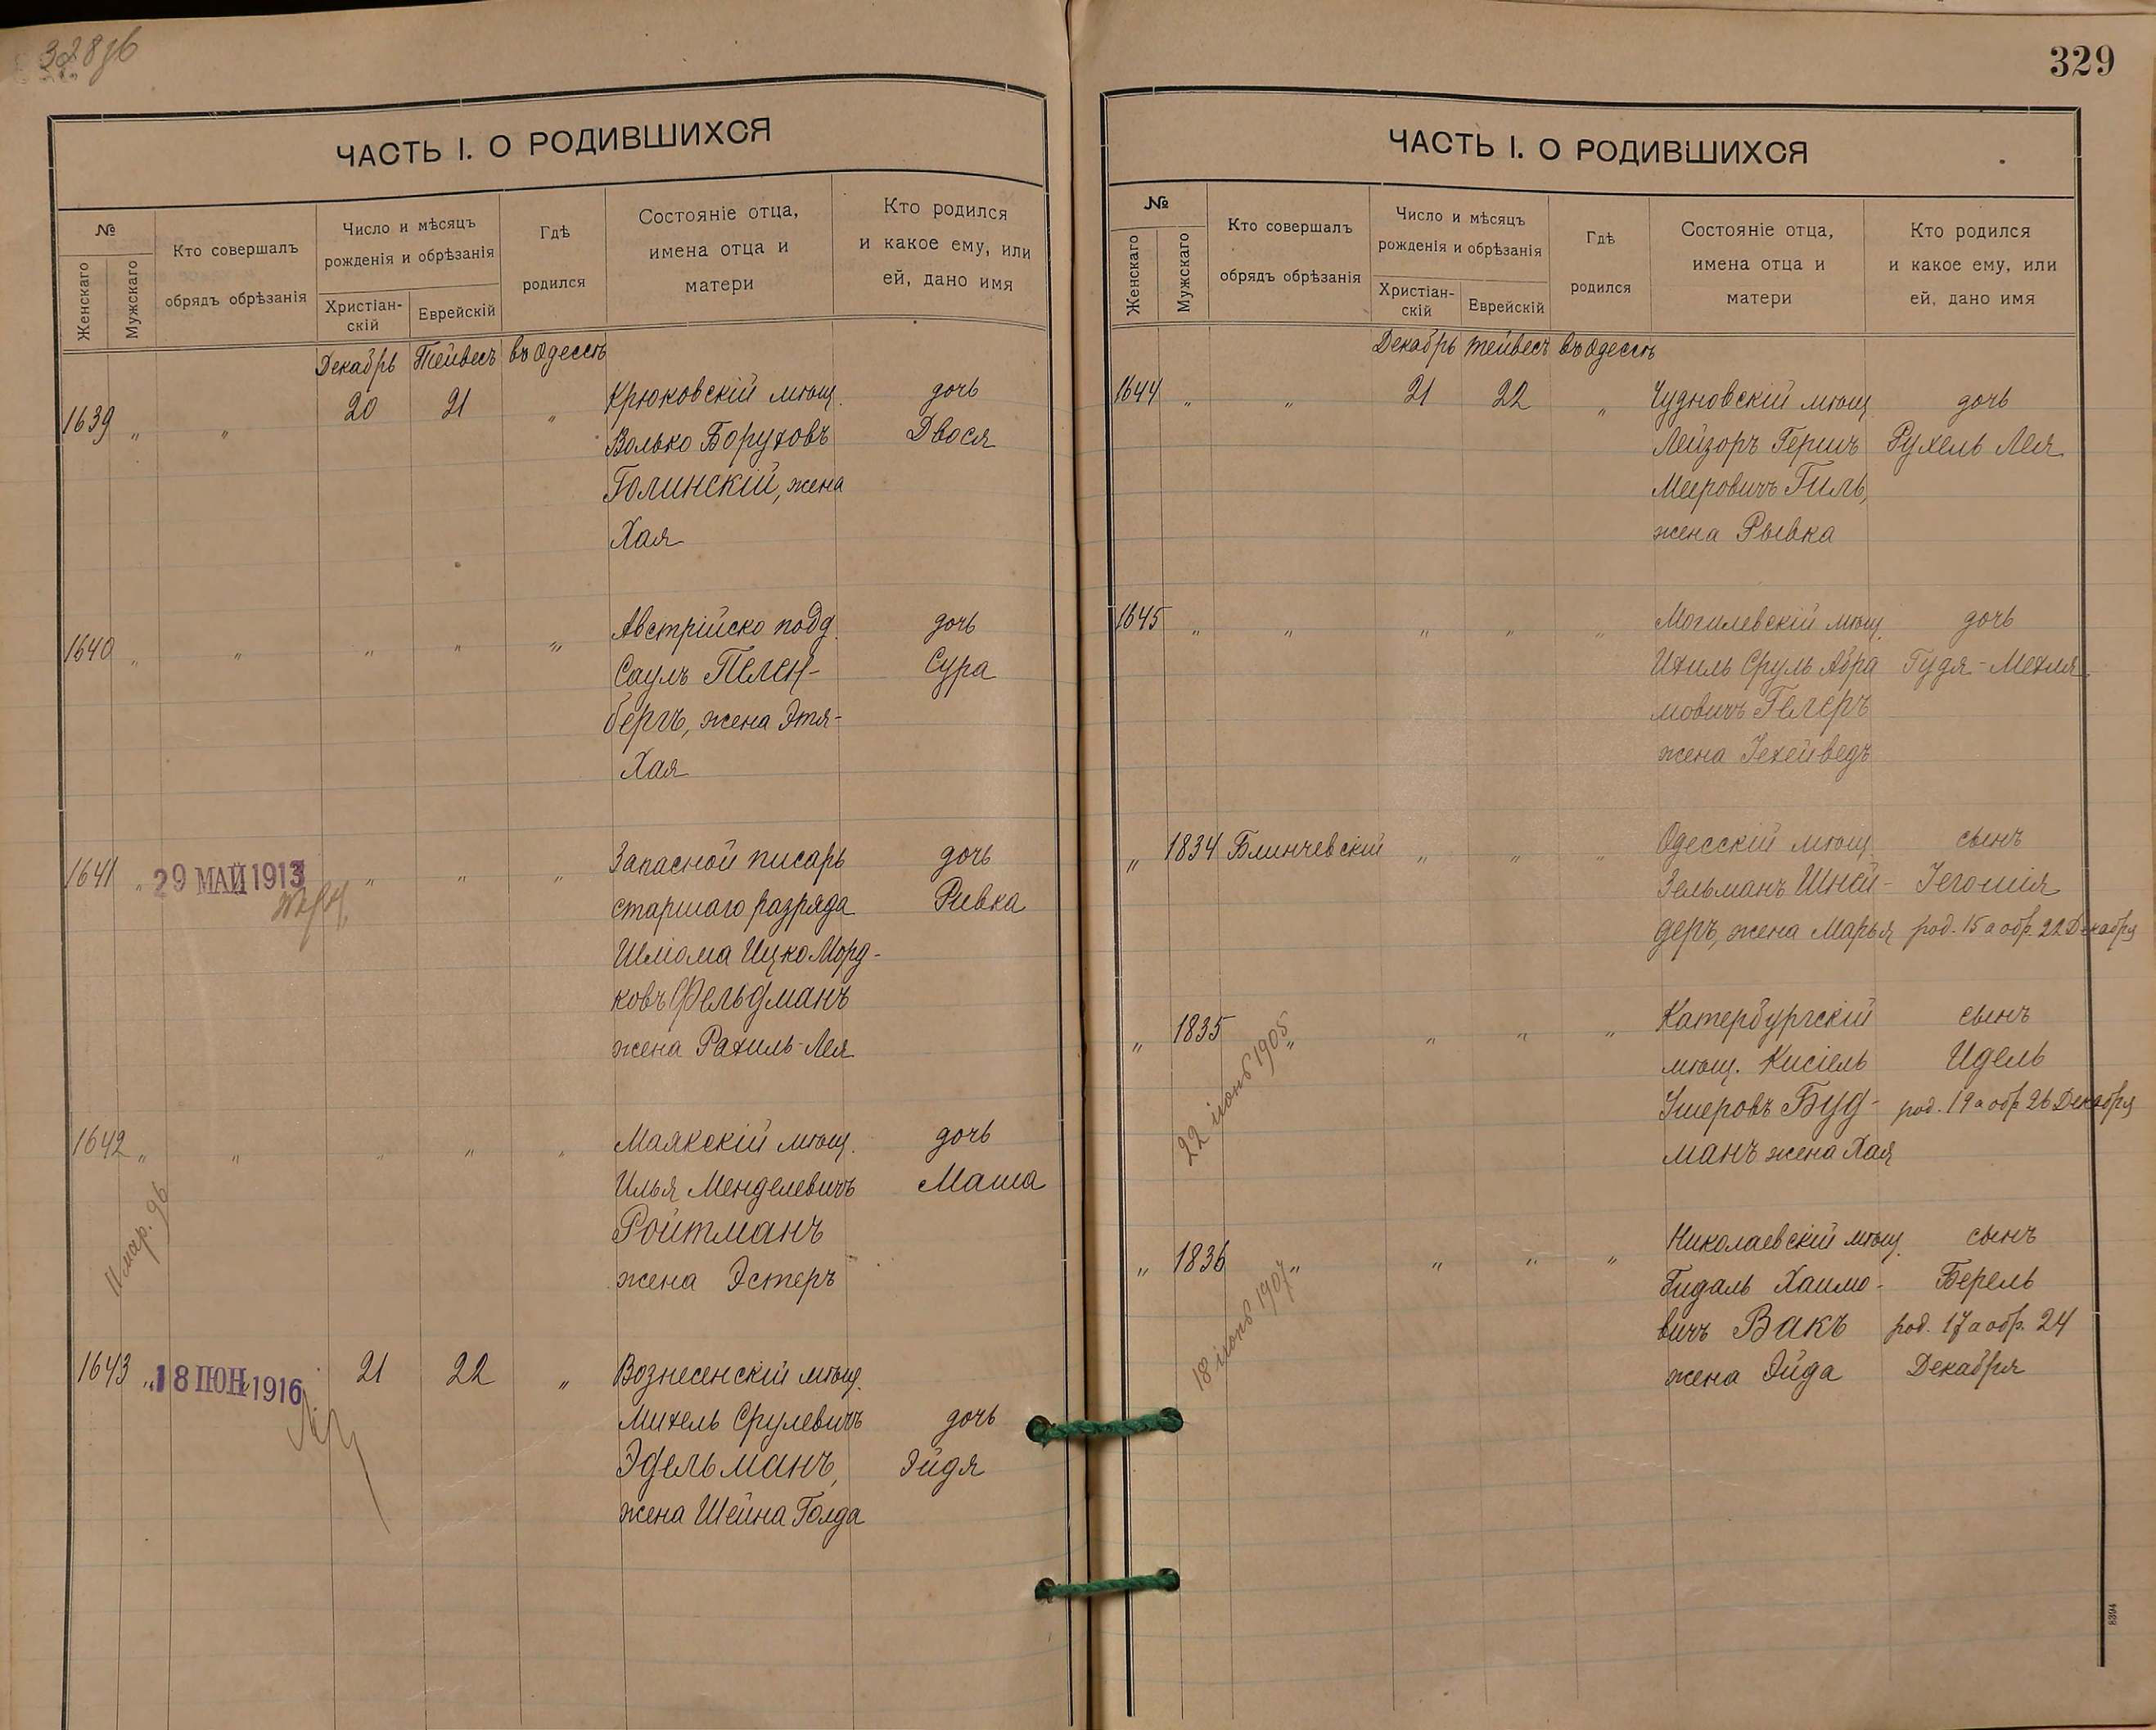 328об
ЧАСТЬ I. О РОДИВШИХСЯ
№
Женскаго
Мужскаго
Кто совершалъ
обрядъ обрѣзанія
Число и мѣсяцъ
рожденія и обрѣзанія
Христіан-
скій
Еврейскій
Гдѣ
родился
Состояніе отца,
имена отца и
матери
Кто родился
и какое ему, или
ей, дано имя
Декабрь Тейвесъ въ Одессѣ
1639 " " 20 21 " Крюковскій мѣщ. дочь
Волько Боруховъ Двося
Голинскій, жена
Хая
1640 " " " " " Австрійско подд. дочь
Саулъ Пелен- Сура
бергъ, жена Этя-
Хая
1641 " 29 МАЙ 1913 " " " Запасной писарь дочь
старшаго разряда Ривка
Шліома Ицко Морд-
ковъ Фельдманъ
жена Рахиль-Лея
1642 " " " " " Маякскій мѣщ. дочь
Илья Менделевичъ Маша
Ройтманъ
жена Эстеръ
11 мар. 96
1643 " 18 ІЮН 1916 21 22 " Вознесенскій мѣщ.
Михель Срулевичъ дочь
Эдельманъ, Эйдя
жена Шейна Голда
329
ЧАСТЬ I. О РОДИВШИХСЯ
№
Женскаго
Мужскаго
Кто совершалъ
обрядъ обрѣзанія
Число и мѣсяцъ
рожденія и обрѣзанія
Христіан-
скій
Еврейскій
Гдѣ
родился
Состояніе отца,
имена отца и
матери
Кто родился
и какое ему, или
ей, дано имя
Декабрь Тейвесъ въ Одессѣ
1644 " " 21 22 " Чудновскій мѣщ дочь
Лейзоръ Гершъ Рухель Лея
Мееровичъ Гиль,
жена Рывка
1645 " " " " " Могилевскій мѣщ. дочь
Ихиль Сруль Абра Гудя-Мехля
мовичъ Гелеръ
жена Іехейведъ
" 1834 Блинчевскій " " " Одесскій мѣщ. сынъ
Зельманъ Шней- Іегошія
деръ, жена Марья род. 15 а обр. 22 Декабря
" 1835 " " " " Катербургскій сынъ
мѣщ. Кисіель Идель
Ушеровъ Буд- род. 19 а обр 26 Декабря
манъ жена Хая
22 іюня 1905
" 1836 " " " " Николаевскій мѣщ. сынъ
Гидаль Хаимо- Берель
вичъ Вакъ род. 17 а обр. 24
жена Эйда Декабря
18 іюня 1907
8394